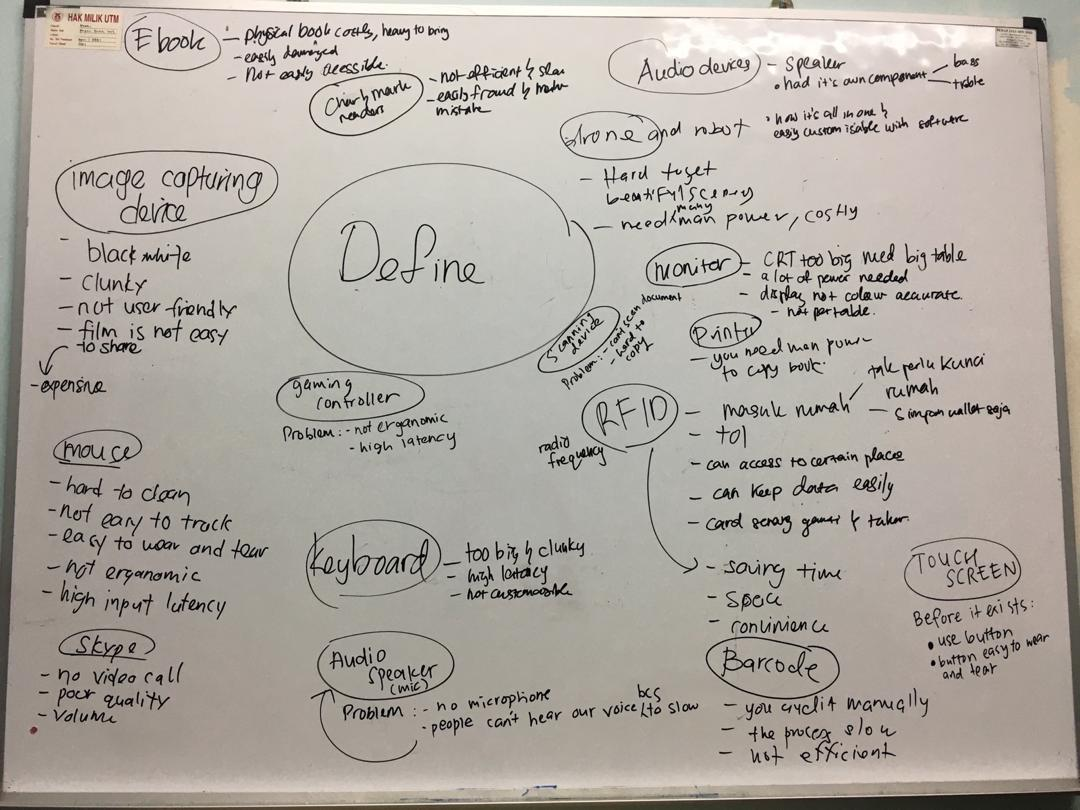 HAK MILIK UTM
Ebook
- Physical book costly, heavy to bring
- easily damaged
- Not easily acessible.
readers
- not efficient & slow
- easily fraud &
mistake
Audio devices
- Speaker
• had it's own component
bass
treble
• now it's all in one &
easily customisable with software
drone and robot
- Hard to get
beautiful scenery
- need many man power, costly
image capturing
device
- black white
- clunky
- not user friendly
- film is not easy
to share
- expensive
Define
monitor
- CRT too big need big table
- a lot of power needed
- display not colour accurate.
- not portable.
Scanning
device
Problem: - can't scan document
- hard to
copy
Printer
- you need man power
to copy book.
gaming
controller
Problem: - not erganomic
- high latency
RFID
radio
frequency
- masuk rumah
tak perlu kunci
rumah
- simpan wallet saja
- tol
- can access to certain places
- can keep data easily
- card
- saving time
- space
- convinience
mouse
- hard to clean
- not easy to track
- easy to wear and tear
- not erganomic
- high input latency
Keyboard
- too big & clunky
- high latency
- not
TOUCH
SCREEN
Before it exists:
• use button
• button easy to wear
and tear
Skype
- no video call
- poor quality
- volume
Audio
speaker
(mic)
Problem : - no microphone
- people can't hear our voice bcs to slow
Barcode
- you manually
- the process slow
- not efficient